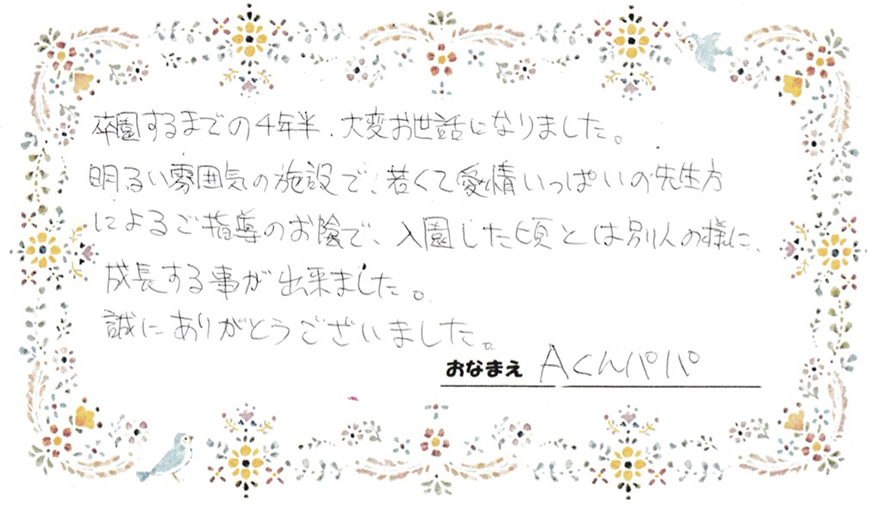 卒園するまでの4年半、大変お世話になりました。
明るい雰囲気の施設で、若くて愛情いっぱいの先生方
によるご指導のお陰で、入園した頃とは別人の様に、
成長する事が出来ました。
誠にありがとうございました。
おなまえ Aくんパパ